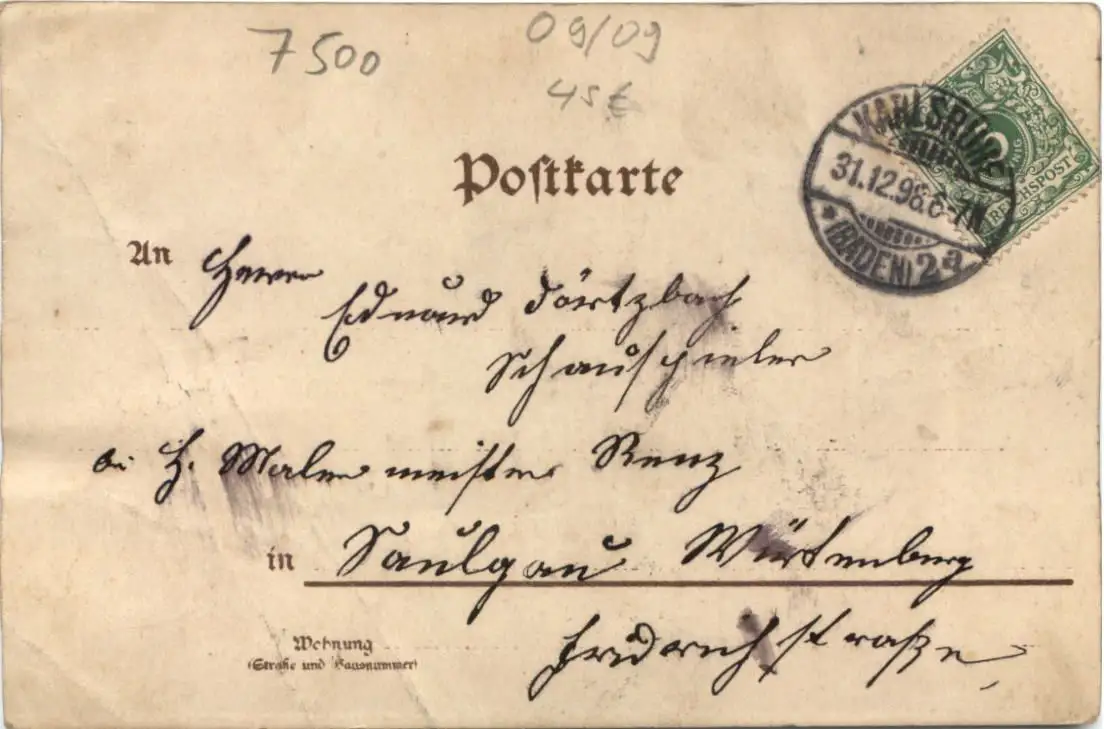 7500
09/09
45 €
KARLSRUHE
31.12.98. 6-7N
* (BADEN) 2 a
REICHSPOST
Postkarte
An Herrn
Eduard Dörtzbach
Schauspieler
bei H. Malermeister Renz
in Saulgau Würtenberg
Wohnung
(Straße und Hausnummer)
Fridrichstraße